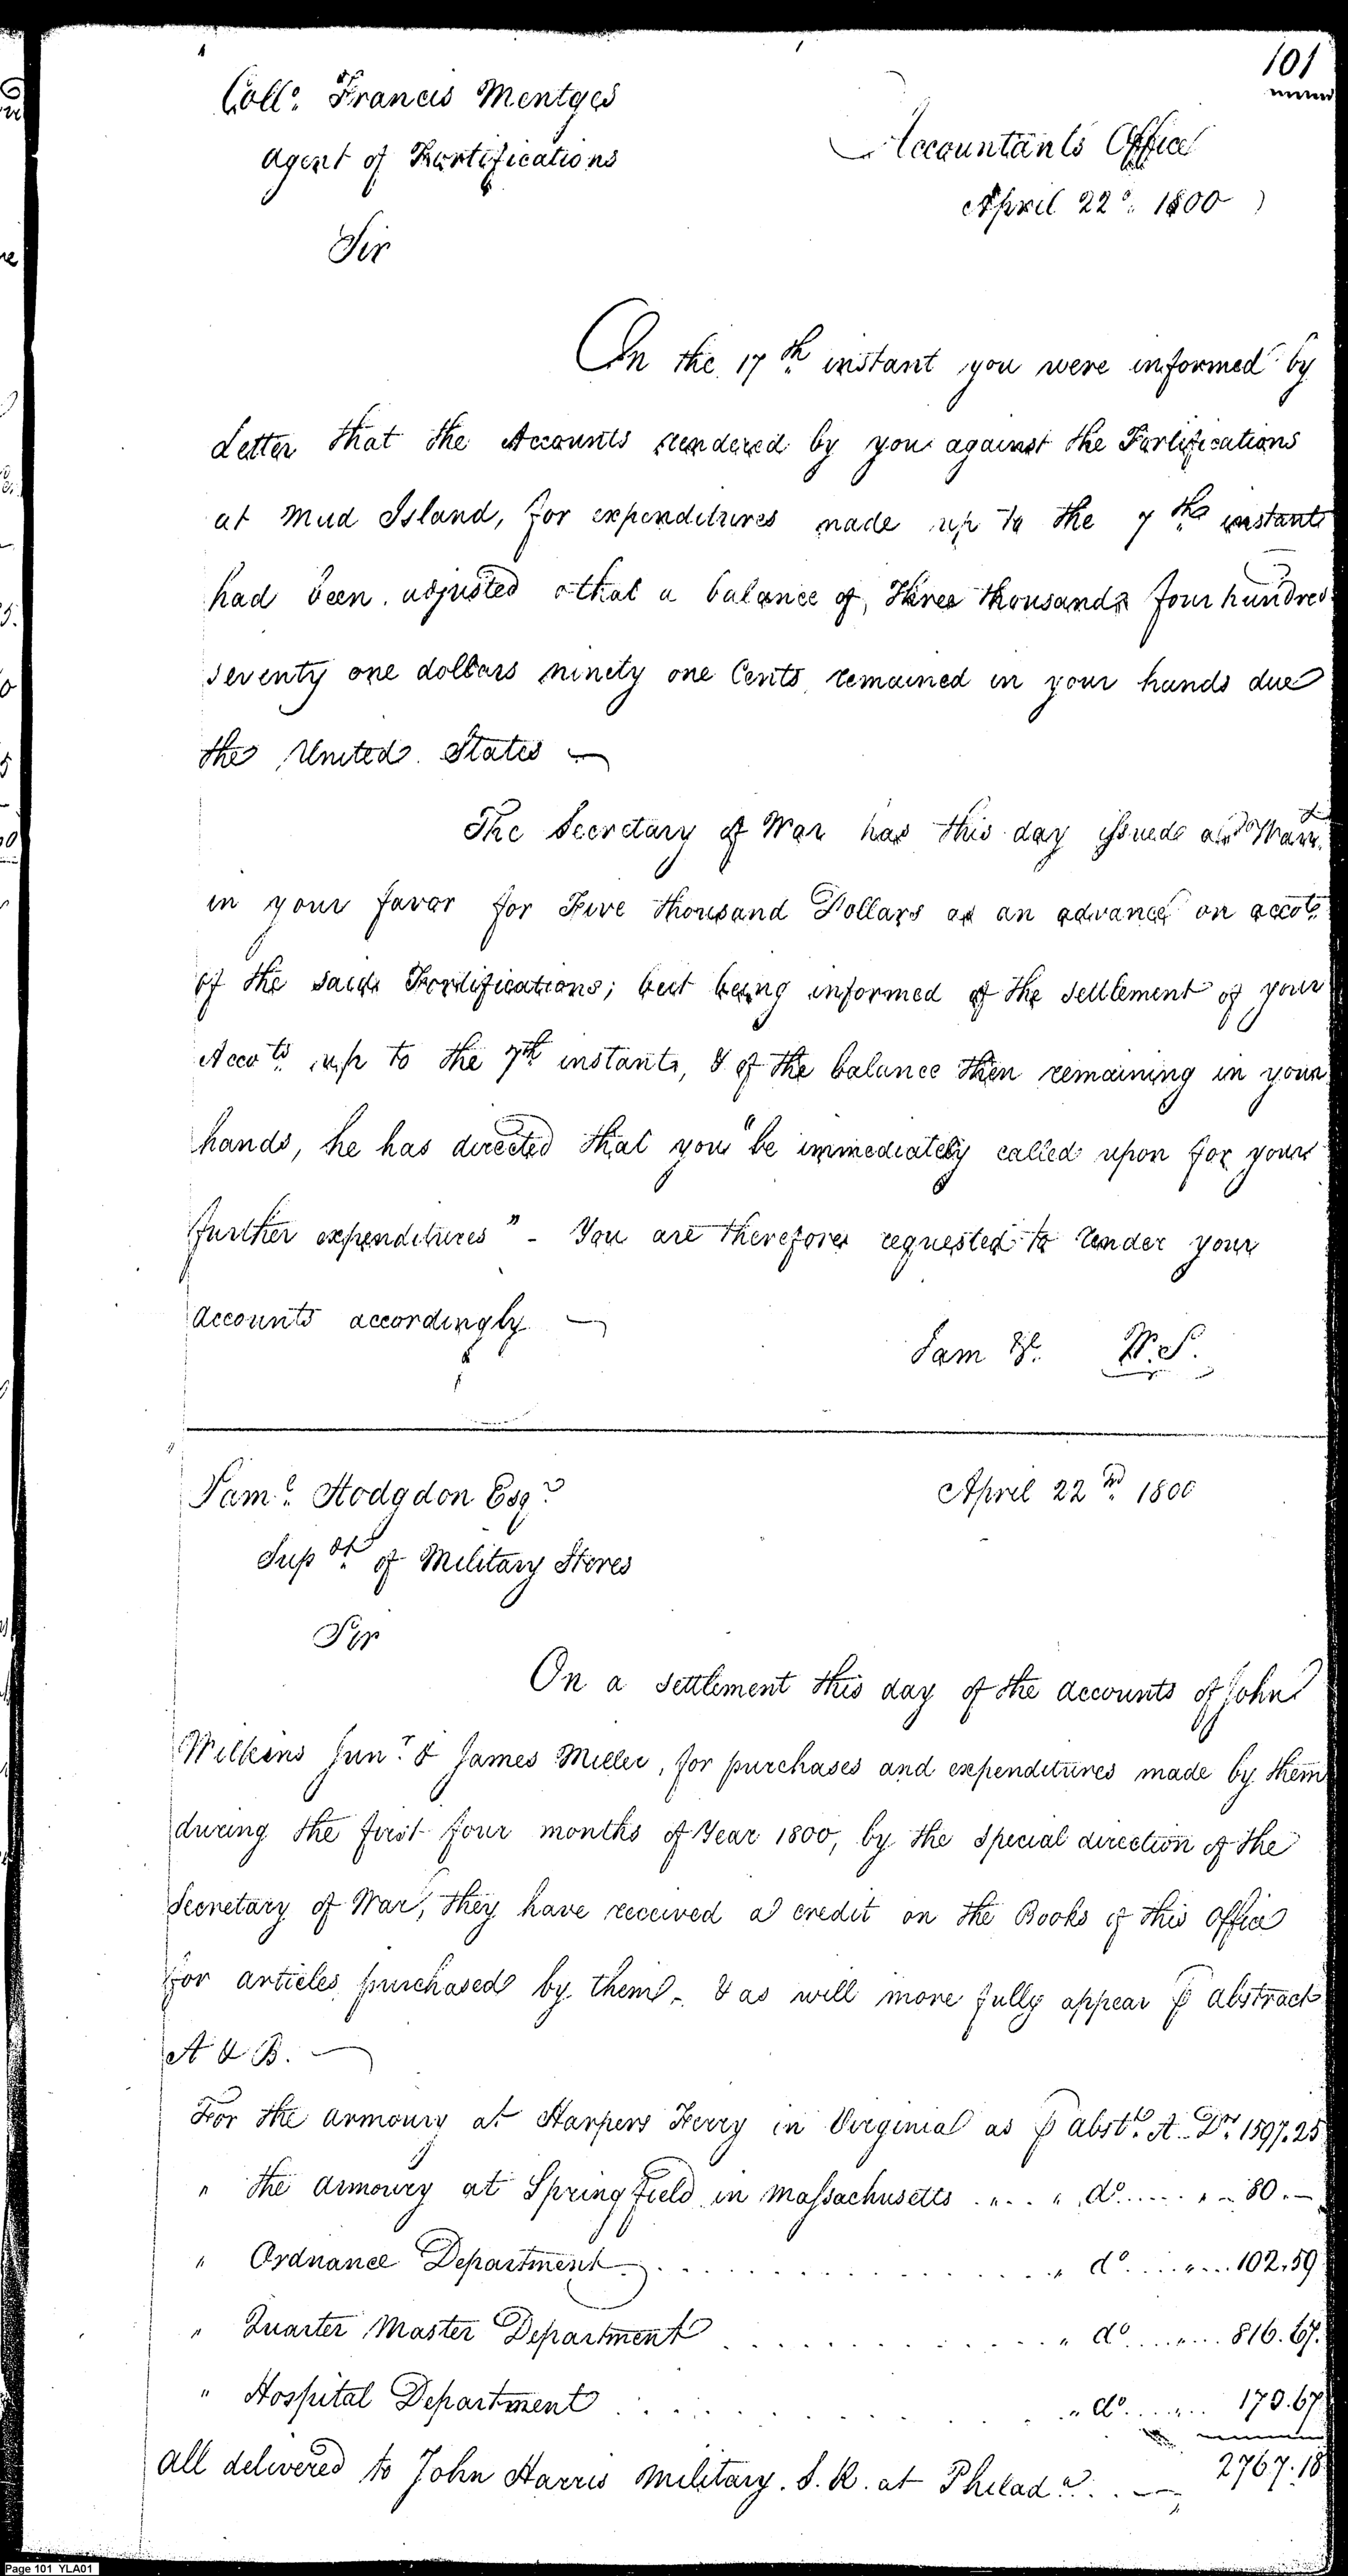 101
Collo. Francis Mentges
Agent of Fortifications
Accountants Office
April 22d. 1800
Sir
On the 17th instant you were informed by
Letter that the Accounts rendered by you against the Fortifications
at Mud Island, for expenditures made up to the 7th instant
had been adjusted & that a balance of, Three thousand four hundred
seventy one dollars ninety one Cents remained in your hands due
the United States —
The Secretary of War has this day issued a Warrt.
in your favor for Five thousand Dollars as an advance on accot.
of the said Fortifications; but being informed of the settlement of your
Accots. up to the 7th instant, & of the balance then remaining in your
hands, he has directed that you "be immediately called upon for your
further expenditures" - You are therefore requested to render your
accounts accordingly —
I am &c. W.S.
Saml. Hodgdon Esqr.
April 22nd. 1800
Supdt. of Military Stores
Sir
On a settlement this day of the accounts of John
Wilkins Junr. & James Miller, for purchases and expenditures made by them
during the first four months of Year 1800, by the special direction of the
Secretary of War, they have received a credit on the Books of this Office
for articles purchased by them - & as will more fully appear ⅌ abstract
A & B. —
For the armoury at Harpers Ferry in Virginia as ⅌ abstt. A. Drs. 1597.25
" the armoury at Springfield in Massachusetts . " . . " do. .... " - 80. —
" Ordnance Department . . . . . . " do. .... " ... 102.59
" Quarter Master Department . . . . . . " do. .... " ... 816.67.
" Hospital Department . . . . . . " do. .... " .. 170.67
2767.18
all delivered to John Harris Military. S.K. at Philada. . . —
Page 101 YLA01